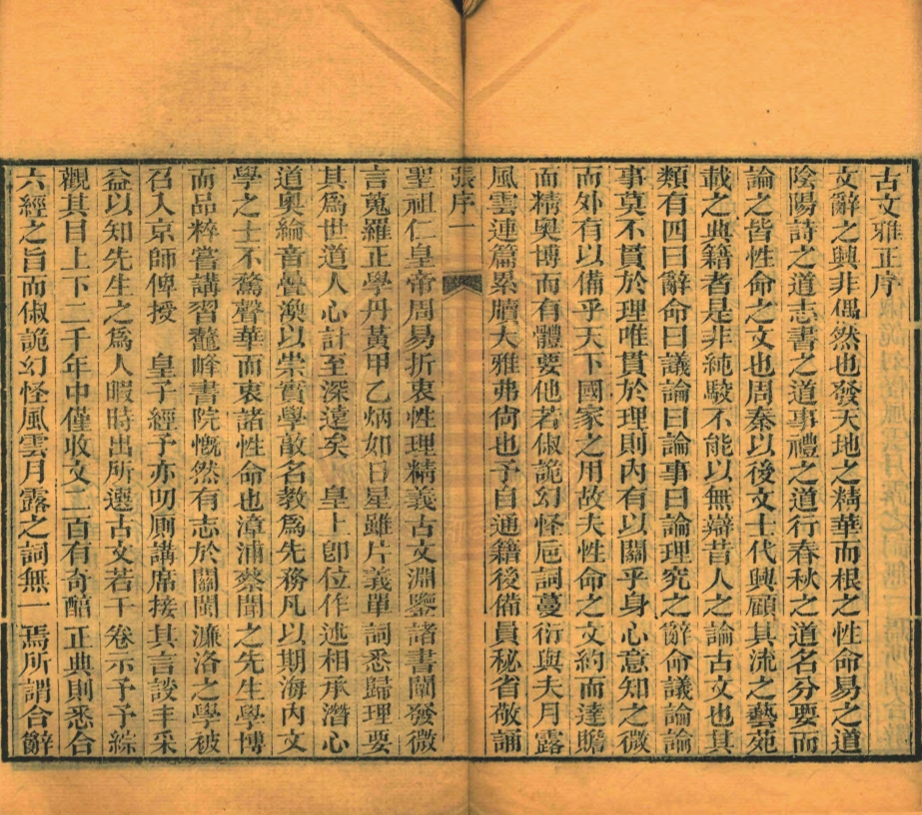 古文雅正序
文辭之興非偶然也發天地之精華而根之性命易之道
陰陽詩之道志書之道事禮之道行春秋之道名分要而
論之皆性命之文也周秦以後文士代興顧其流之藝苑
載之典籍者是非純駮不能以無辯昔人之論古文也其
類有四曰辭命曰議論曰論事曰論理究之辭命議論論
事莫不貫於理唯貫於理則內有以關乎身心意知之微
而外有以備乎天下國家之用故夫性命之文約而達贍
而精奧博而有體要他若俶詭幻怪巵詞蔓衍與夫月露
風雲連篇累牘大雅弗尙也予自通籍後備員秘省敬誦
張序 一
聖祖仁皇帝周易折衷性理精義古文淵鑒諸書闡發微
言蒐羅正學丹黃甲乙炳如日星雖片義單詞悉歸理要
其爲世道人心計至深遠矣 皇上卽位作述相承潛心
道奧綸音疊渙以崇實學敵名教爲先務凡以期海內文
學之士不騖聲華而衷諸性命也漳浦蔡聞之先生學博
而品粹嘗講習鼇峰書院慨然有志於關閩濂洛之學被
召入京師俾授 皇子經予亦叨厠講席接其言談丰采
益以知先生之爲人暇時出所選古文若干卷示予予綜
觀其目上下二千年中僅收文二百有奇醕正典則悉合
六經之旨而俶詭幻怪風雲月露之詞無一焉所謂合辭